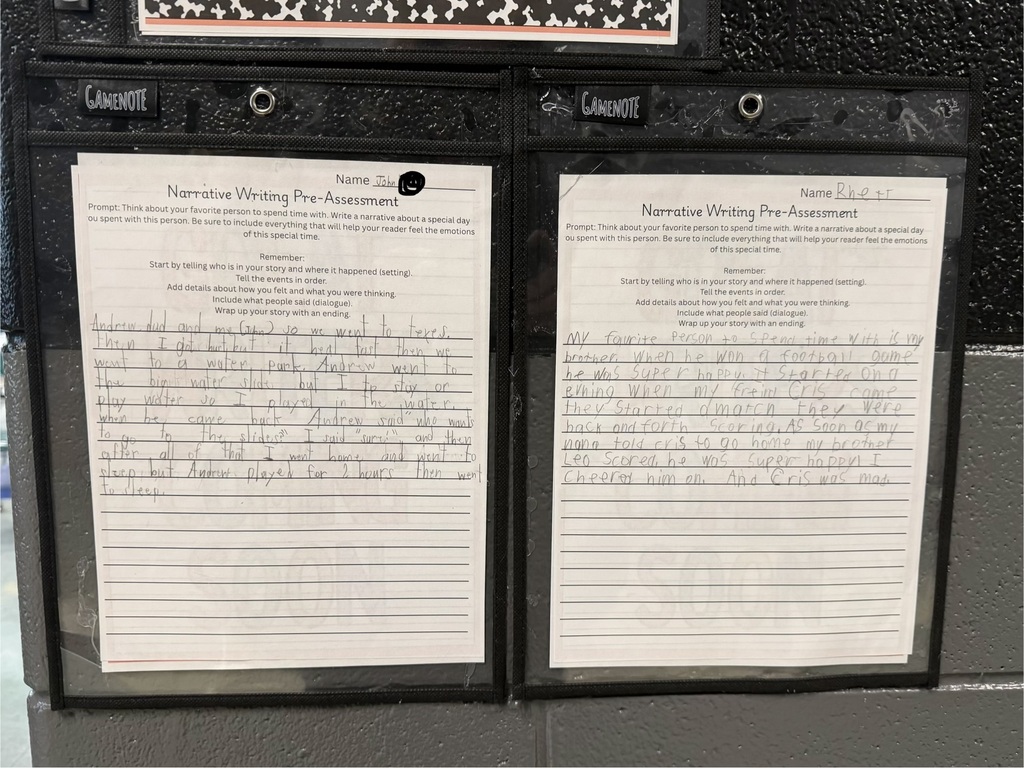 GAMENOTE
Name John
Narrative Writing Pre-Assessment
Prompt: Think about your favorite person to spend time with. Write a narrative about a special day
ou spent with this person. Be sure to include everything that will help your reader feel the emotions
of this special time.
Remember:
Start by telling who is in your story and where it happened (setting).
Tell the events in order.
Add details about how you felt and what you were thinking.
Include what people said (dialogue).
Wrap up your story with an ending.
Andrew dad and me (John) so we went to texes.
then I got hurt but it heal fast then we
went to a water park. Andrew went to
the big water slide. but I to stay or
play water so I played in the water.
when he came back Andrew said "who wants
to go to the slides?" I said "sure" and then
after all of that I went home and went to
sleep but Andrew played for 2 hours then went
to sleep.
GAMENOTE
Name Rhett
Narrative Writing Pre-Assessment
Prompt: Think about your favorite person to spend time with. Write a narrative about a special day
ou spent with this person. Be sure to include everything that will help your reader feel the emotions
of this special time.
Remember:
Start by telling who is in your story and where it happened (setting).
Tell the events in order.
Add details about how you felt and what you were thinking.
Include what people said (dialogue).
Wrap up your story with an ending.
My faurite Person to spend time with is my
brother. When he won a football game
he was super happy. it Started on a
evning when my freind Cris came
they Started a march they were
back and forth Scoring. As soon as my
nana told cris to go home my brother
Leo Scored. he was super happy! I
Cheered him on. And Cris was mad.